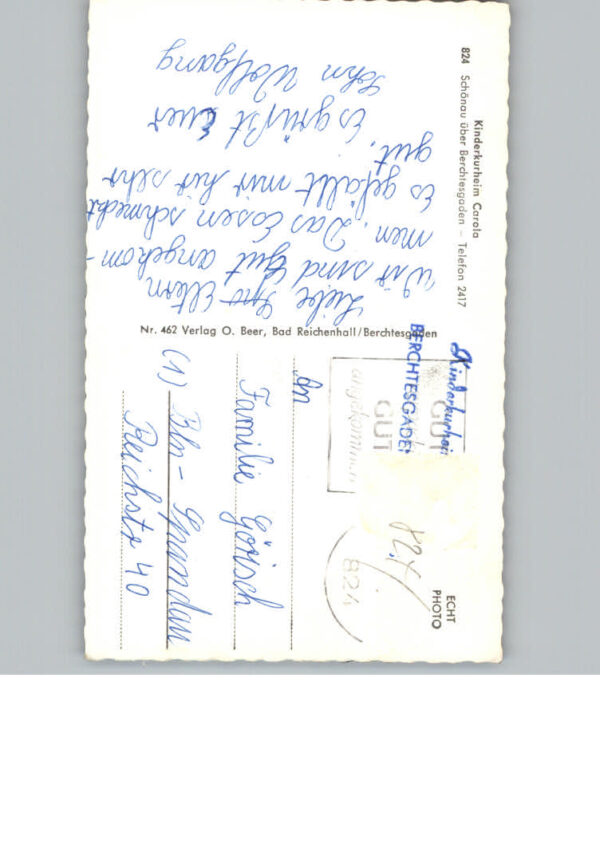 Kinderkurheim Carola
824 Schönau über Berchtesgaden – Telefon 2417
Liebe Eltern
Wir sind gut angekom-
men. Das Essen schmeckt
Es gefällt mir hir sehr
gut.
Es grüßt Euer
Sohn Wolfgang
Nr. 462 Verlag O. Beer, Bad Reichenhall/Berchtesgaden
ECHT
PHOTO
824
GUT
GUT
angekommen
BERCHTESGADEN
824
An
Familie Görisch
(1) Bln - Spandau
Reichstr 40